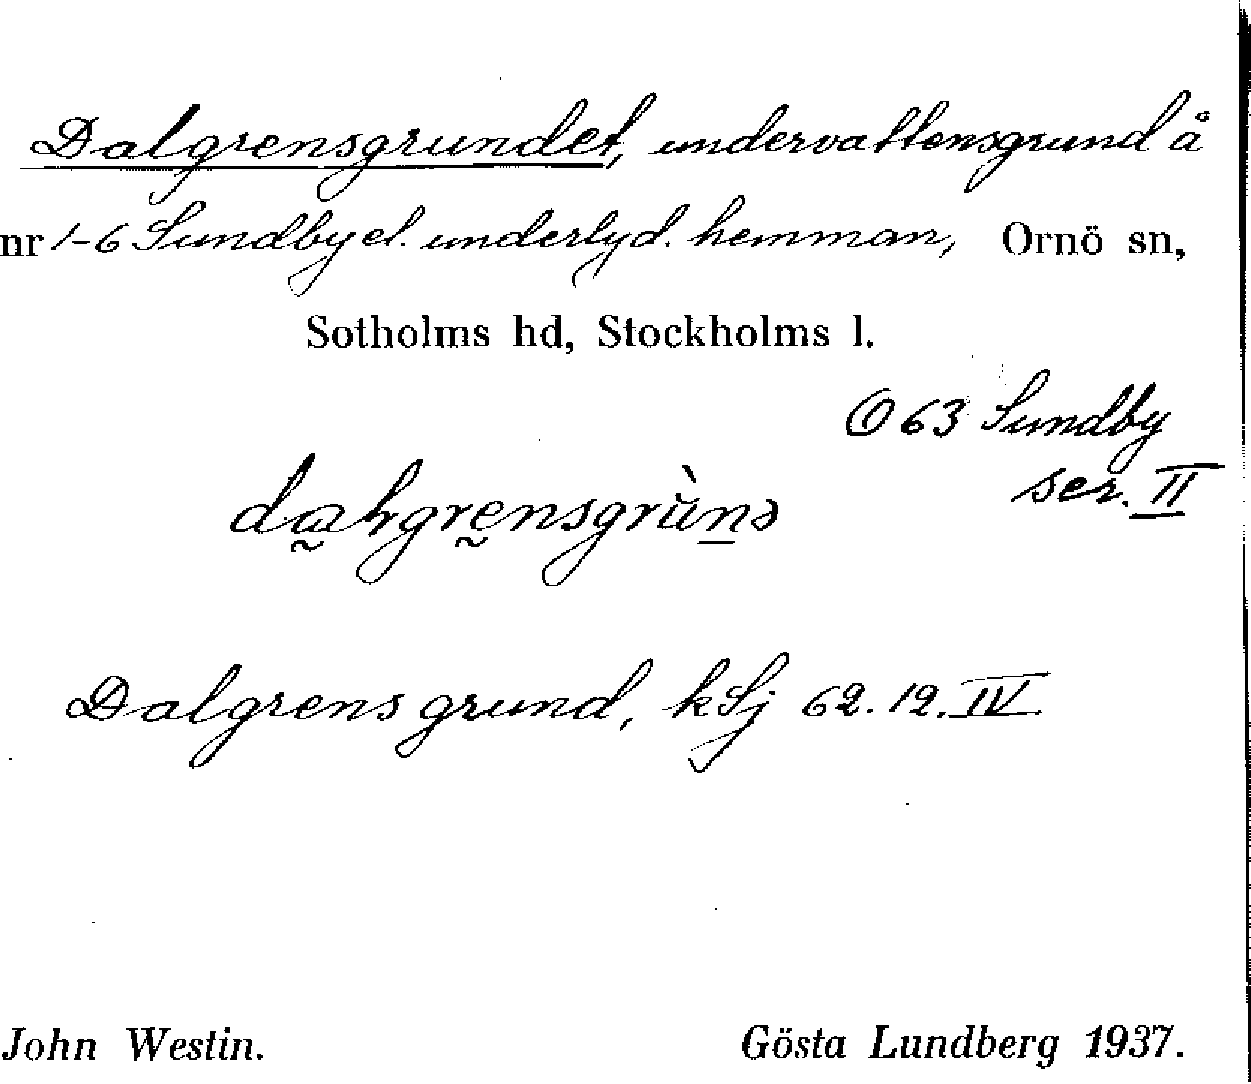 Dalgrensgrundet, undervattensgrund å
nr 1-6 Sundby el. underlyd. hemman, Ornö sn,
Sotholms hd, Stockholms l.
Ⓞ 63 Sundby
ser. II
Dalgrens grund, kSj 62.12.IV
John Westin. Gösta Lundberg 1937.